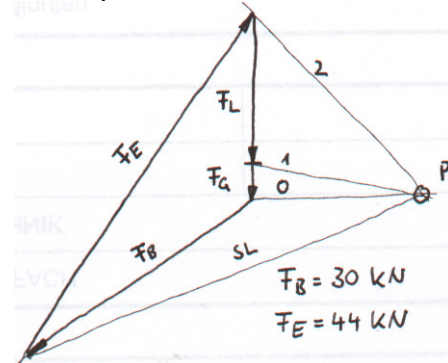 2
F_L
F_E
1
P
F_G
0
F_B
SL
F_B = 30 KN
F_E = 44 KN